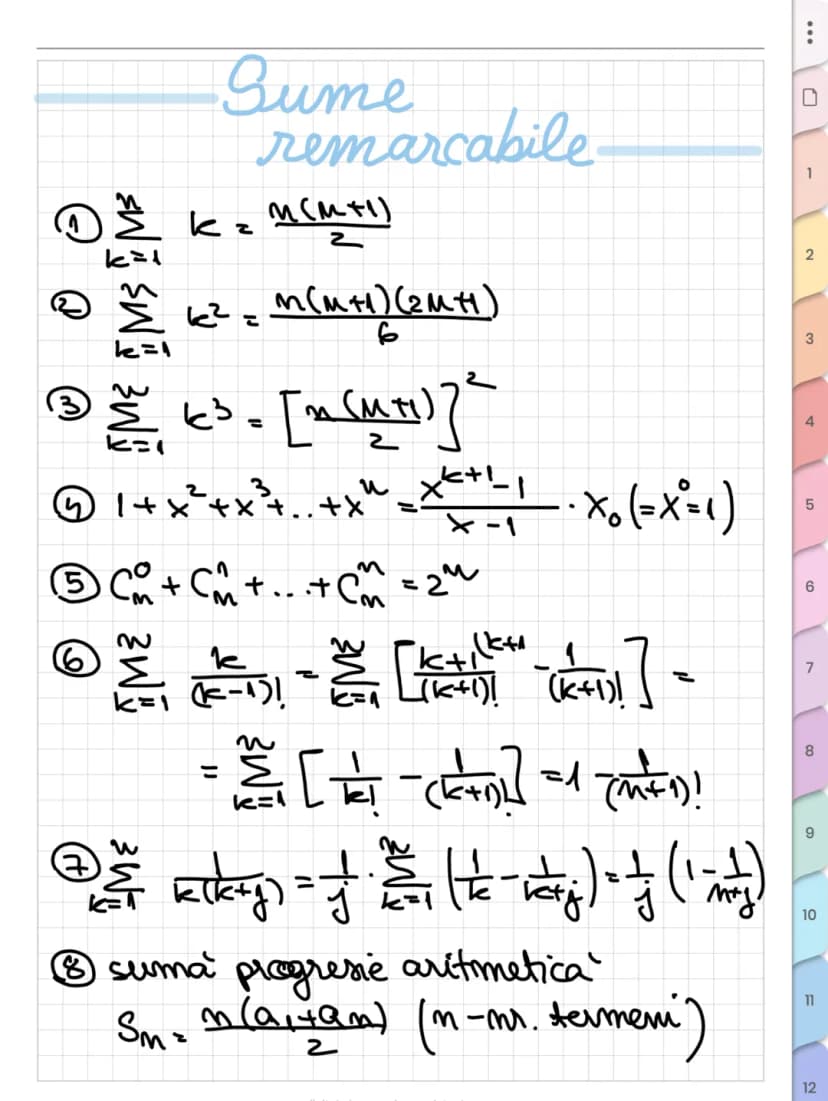 Sume
remarcabile
① \sum_{k=1}^{n} k = \frac{n(n+1)}{2}
② \sum_{k=1}^{n} k^2 = \frac{n(n+1)(2n+1)}{6}
③ \sum_{k=1}^{n} k^3 = \left[\frac{n(n+1)}{2}\right]^2
④ 1+x^2+x^3+..+x^n = \frac{x^{k+1}-1}{x-1} \cdot x_0 (=x^0=1)
⑤ C_n^0 + C_n^1 + ... + C_n^n = 2^n
⑥ \sum_{k=1}^{n} \frac{k}{(k-1)!} = \sum_{k=1}^{n} \left[\frac{k+1}{(k+1)!}^{(k+1} - \frac{1}{(k+1)!}\right] =
= \sum_{k=1}^{n} \left[\frac{1}{k!} - \frac{1}{(k+1)!}\right] = 1 - \frac{1}{(n+1)!}
⑦ \sum_{k=1}^{n} \frac{1}{k(k+j)} = \frac{1}{j} \cdot \sum_{k=1}^{n} \left(\frac{1}{k} - \frac{1}{k+j}\right) = \frac{1}{j} \left(1 - \frac{1}{n+j}\right)
⑧ sumă progresie aritmetică
S_n = \frac{n(a_1+a_n)}{2} (n-nr. termeni)
1
2
3
4
5
6
7
8
9
10
11
12